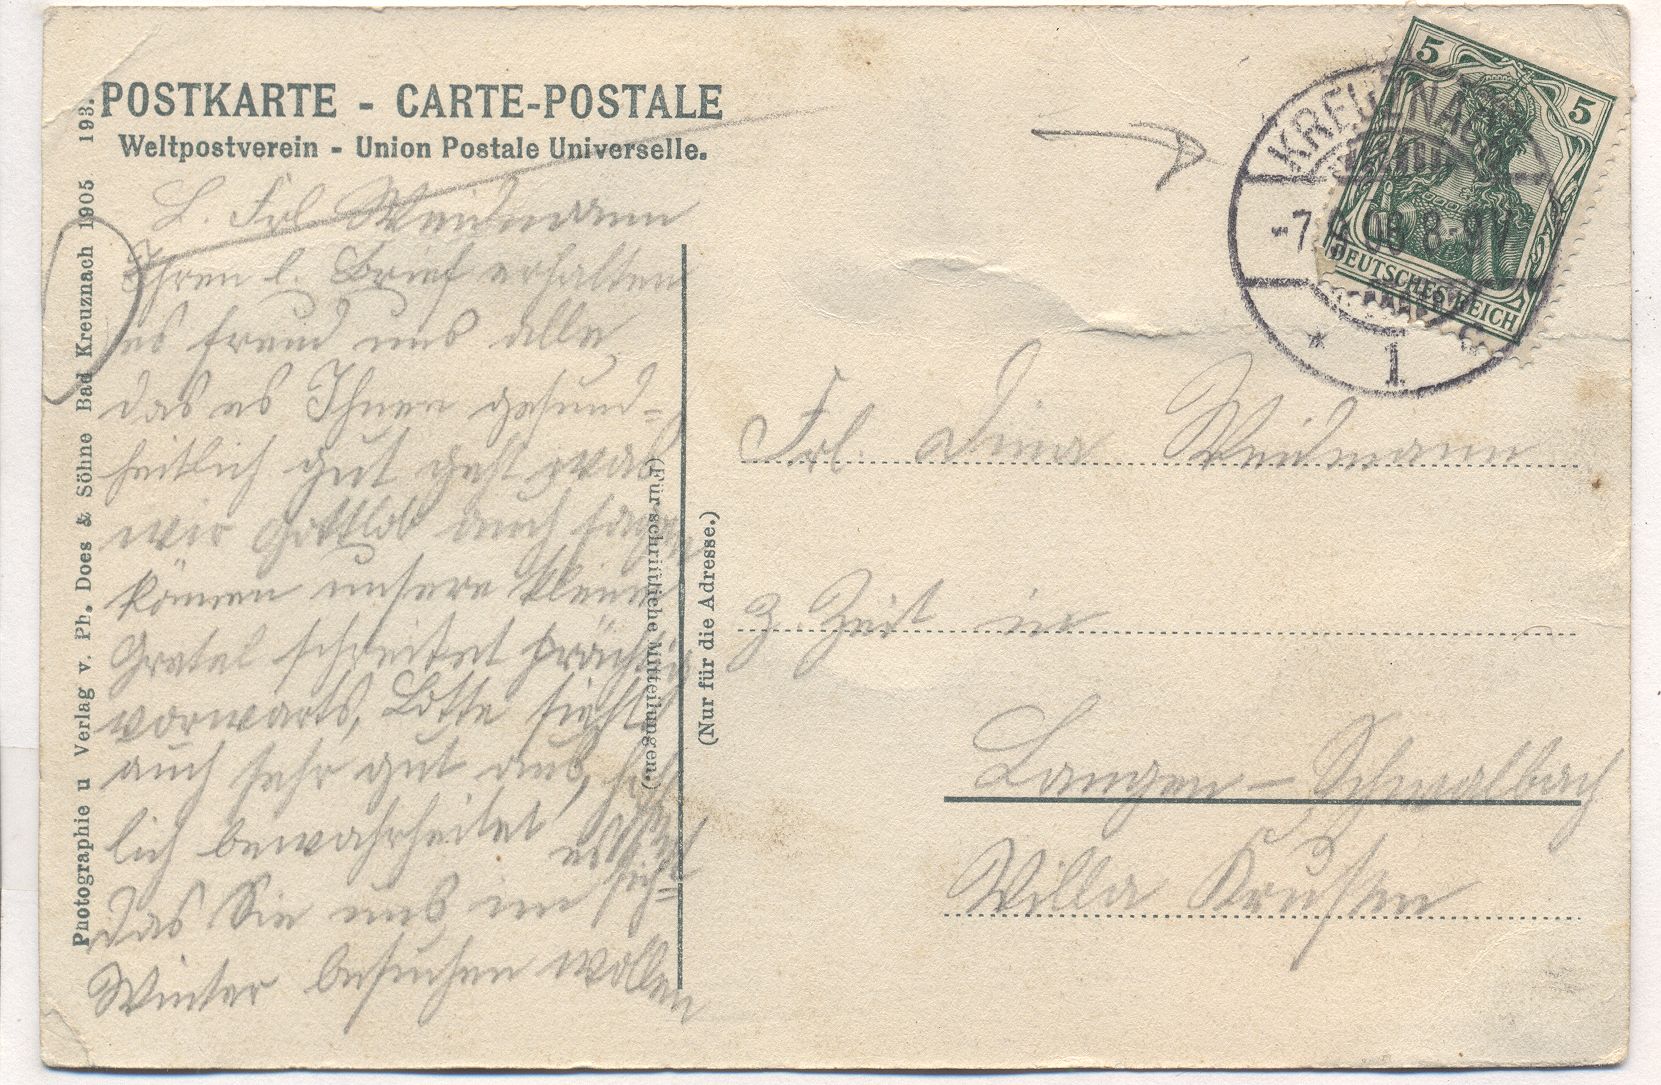 POSTKARTE - CARTE-POSTALE
Weltpostverein - Union Postale Universelle.
L. Frl Weidmann
Ihren l. Brief erhalten
es freud uns alle
das es Ihnen gesund-
heitlich gut geht, was
wir Gottlob auch sagen
können unsere kleine
Gretel schreitet prächtig
vorwärts, Lotte sieht
auch sehr gut aus,
lich bewahrheitet es sich
das Sie uns im
Winter besuchen wollen
Photographie u Verlag v. Ph. Does & Söhne Bad Kreuznach 1905 193.
(Für schriftliche Mitteilungen.)
(Nur für die Adresse.)
5 5
DEUTSCHES REICH
KREUZNACH
-7.9.09.8-9V
* 1
Frl. Dina Weidmann
z. Zeit in
Langen-Schwalbach
Villa Krusten